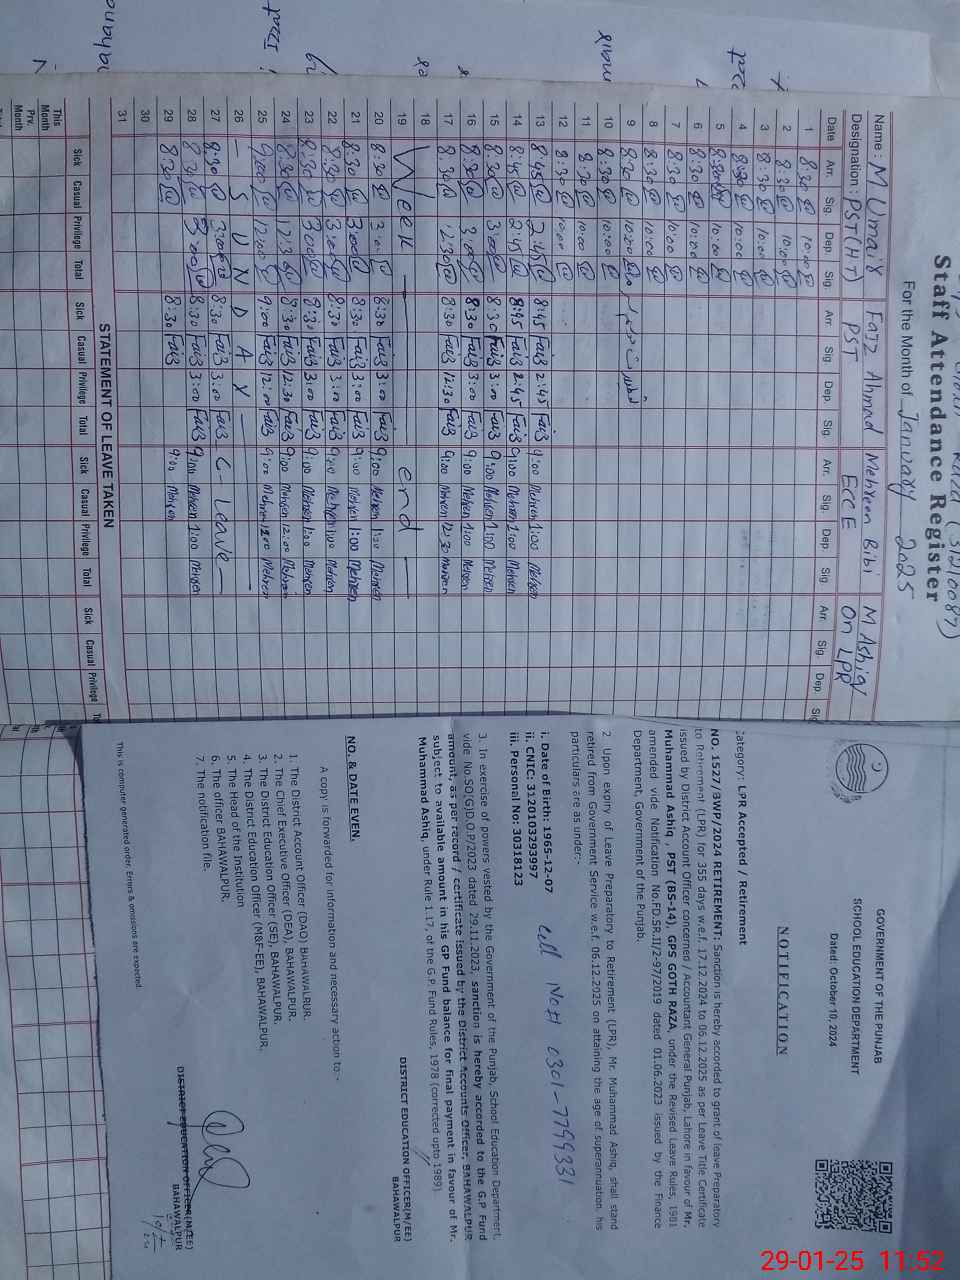 Staff Attendance Register
For the Month of January 2025
Name : M Umair Faiz Ahmad Mehreen Bibi M Ashiq
Designation : PST(HT) PST ECCE On LPR
Date Arr. Sig. Dep. Sig. Arr. Sig. Dep. Sig. Arr. Sig. Dep. Sig. Arr. Sig. Dep. Sig
1 8:30 10:00
2 8:30 10:00
3 8:30 10:00
4 8:30 10:00
5 8:30 10:00
6 8:30 10:00
7 8:30 10:00
8 8:30 10:00
9 8:30 10:00
10 8:30 10:00
11 8:30 10:00
12 8:30 10:00
13 8:45 2:45 8:45 Faiz 2:45 Faiz 9:00 Mehren 1:00 Mehren
14 8:45 2:45 8:45 Faiz 2:45 Faiz 9:00 Mehren 1:00 Mehren
15 8:30 3:00 8:30 Faiz 3:00 Faiz 9:00 Mehren 1:00 Mehren
16 8:30 3:00 8:30 Faiz 3:00 Faiz 9:00 Mehren 1:00 Mehren
17 8:30 12:30 8:30 Faiz 12:30 Faiz 9:00 Mehren 12:30 Mehren
18
19 Week end
20 8:30 3:00 8:30 Faiz 3:00 Faiz 9:00 Mehren 1:00 Mehren
21 8:30 3:00 8:30 Faiz 3:00 Faiz 9:00 Mehren 1:00 Mehren
22 8:30 3:00 8:30 Faiz 3:00 Faiz 9:00 Mehren 1:00 Mehren
23 8:30 3:00 8:30 Faiz 3:00 Faiz 9:00 Mehren 1:00 Mehren
24 8:30 12:30 8:30 Faiz 12:30 Faiz 9:00 Mehren 12:00 Mehren
25 9:00 12:00 9:00 Faiz 12:00 Faiz 9:00 Mehren 12:00 Mehren
26 — S U N D A Y —
27 8:30 3:00 8:30 Faiz 3:00 Faiz C - Leave -
28 8:30 3:00 8:30 Faiz 3:00 Faiz 9:00 Mehren 1:00 Mehren
29 8:30 8:30 Faiz 9:00 Mehren
30
31
STATEMENT OF LEAVE TAKEN
Sick Casual Privilege Total Sick Casual Privilege Total Sick Casual Privilege Total Sick Casual Privilege
This Month
Prv. Month
GOVERNMENT OF THE PUNJAB
SCHOOL EDUCATION DEPARTMENT
Dated: October 10, 2024
NOTIFICATION
Category: LPR Accepted / Retirement
NO. 1527/3WP/2024 RETIREMENT: Sanction is hereby accorded to grant of leave Preparatory
to Retirement (LPR) for 355 days w.e.f. 17.12.2024 to 06.12.2025 as per Leave Title Certificate
issued by District Account Officer concerned / Accountant General Punjab, Lahore in favour of Mr.
Muhammad Ashiq , PST (BS-14), GPS GOTH RAZA, under the Revised Leave Rules, 1981
amended vide Notification No.FD.SR.II/2-97/2019 dated 01.06.2023 issued by the Finance
Department, Government of the Punjab.
2. Upon expiry of Leave Preparatory to Retirement (LPR), Mr. Muhammad Ashiq, shall stand
retired from Government Service w.e.f. 06.12.2025 on attaining the age of superannuation, his
particulars are as under:-
i. Date of Birth: 1965-12-07
ii. CNIC: 3120103293997
iii. Personal No: 30318123
cell No#
3. In exercise of powers vested by the Government of the Punjab, School Education Department,
vide No.SO(G)D.O.P/2023 dated 29.11.2023, sanction is hereby accorded to the G.P Fund
amount, as per record / certificate issued by the District Accounts Officer, BAHAWALPUR
subject to available amount in his GP Fund balance for final payment in favour of Mr.
Muhammad Ashiq, under Rule 1.17, of the G.P. Fund Rules, 1978 (corrected upto 1989).
DISTRICT EDUCATION OFFICER(M/EE)
BAHAWALPUR
NO. & DATE EVEN.
A copy is forwarded for information and necessary action to:-
1. The District Account Officer (DAO) BAHAWALPUR.
2. The Chief Executive Officer (DEA), BAHAWALPUR.
3. The District Education Officer (SE), BAHAWALPUR.
4. The District Education Officer (M&F-EE), BAHAWALPUR.
5. The Head of the Institution
6. The officer BAHAWALPUR.
7. The notification file.
DISTRICT EDUCATION OFFICER(M/EE)
BAHAWALPUR
This is computer generated order. Errors & omissions are expected
29-01-25 11:52